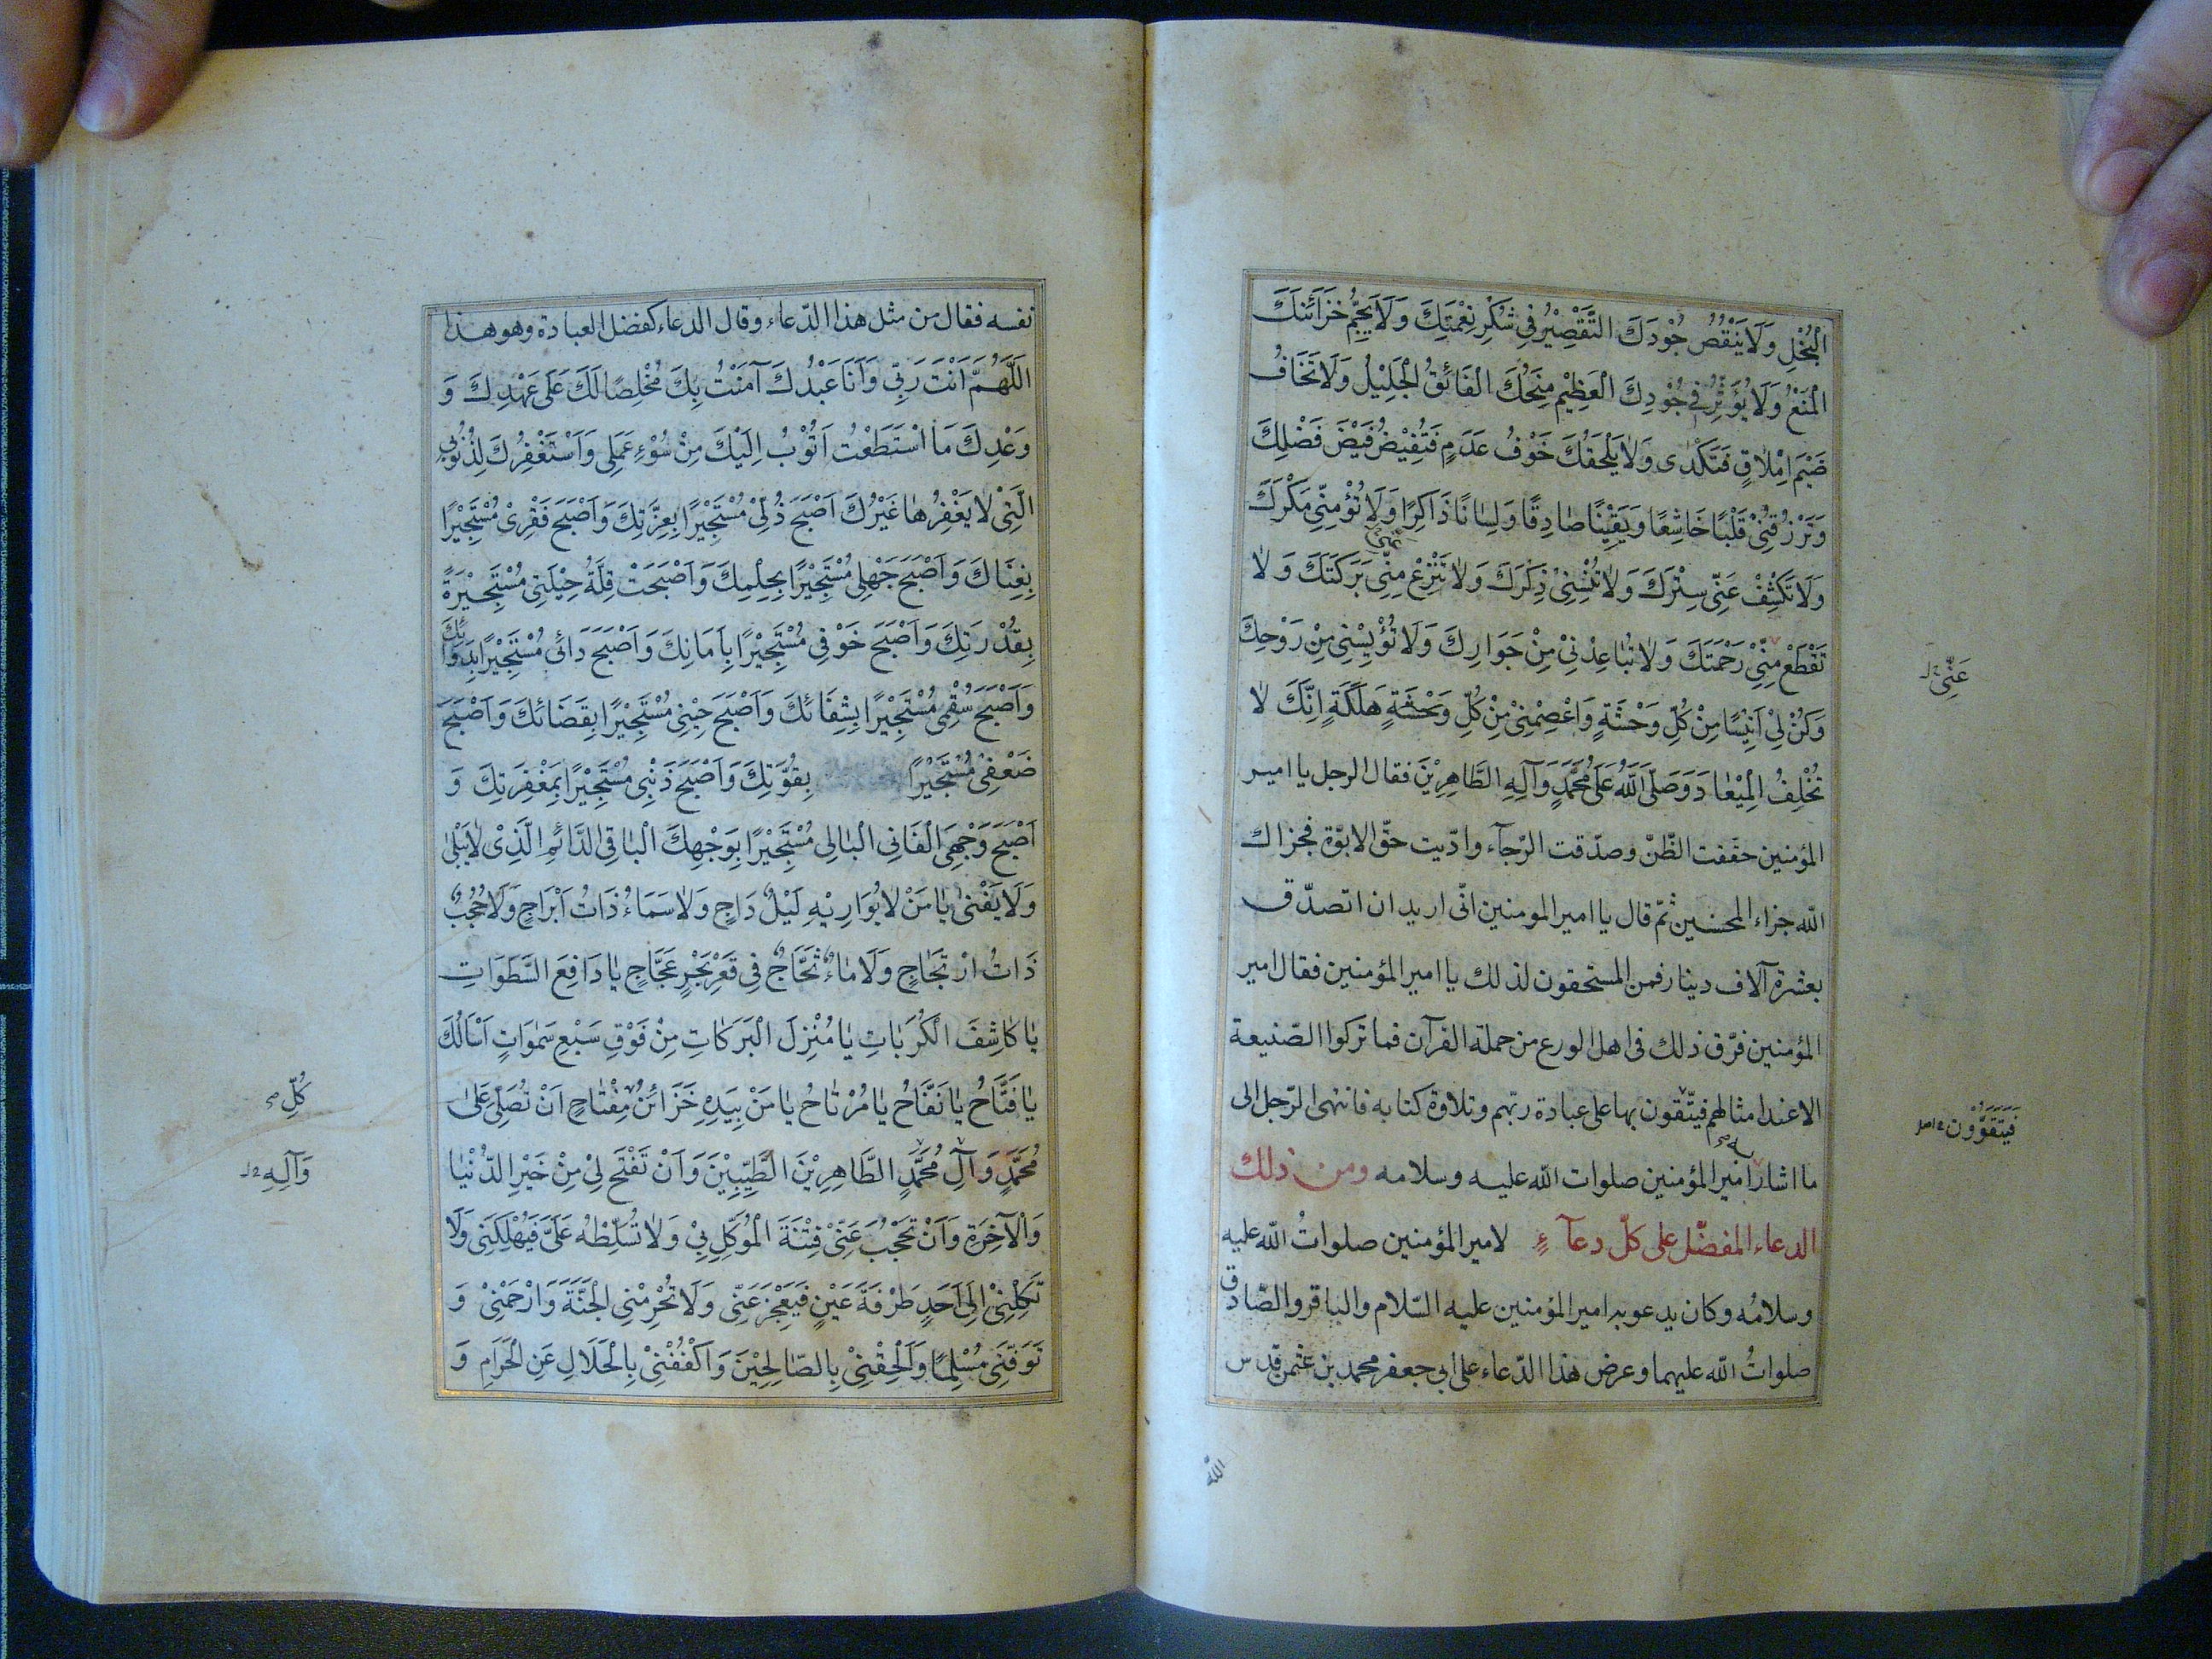 الْبُخْلِ وَلَا يَنْقُصُ جُوْدَكَ التَّقْصِيْرُ فِي شُكْرِ نِعْمَتِكَ وَلَا يُجِمُّ خَزَائِنَكَ
الْمَنْعُ وَلَا يُؤَثِّرُ فِي جُوْدِكَ الْعَظِيْمِ مِنَحُكَ الْفَائِقُ الْجَلِيْلُ وَلَا تَخَافُ
ضَيْمَ اِمْلَاقٍ فَتُكْدٰى وَلَا يَلْحَقُكَ خَوْفُ عَدَمٍ فَتُفِيْضُ فَيْضَ فَضْلِكَ
وَتَرْزُقَنِيْ قَلْبًا خَاشِعًا وَيَقِيْنًا صَادِقًا وَلِسَانًا ذَاكِرًا وَلَا تُؤْمِنِّي مَكْرَكَ
وَلَا تَكْشِفْ عَنِّي سِتْرَكَ وَلَا تُنْسِنِيْ ذِكْرَكَ وَلَا تَنْزِعْ مِنِّي بَرَكَتَكَ وَلَا
تَقْطَعْ مِنِّيْ رَحْمَتَكَ وَلَا تُبَاعِدْنِيْ مِنْ جَوَارِكَ وَلَا تُؤْيِسْنِي مِنْ رَوْحِكَ
عَنِّيْ
وَكُنْ لِيْ اَنِيْسًا مِنْ كُلِّ وَحْشَةٍ وَاعْصِمْنِيْ مِنْ كُلِّ هَلَكَةٍ اِنَّكَ لَا
تُخْلِفُ الْمِيْعَادَ وَصَلَّى اللّٰهُ عَلٰى مُحَمَّدٍ وَآلِهِ الطَّاهِرِيْنَ فقال الرجل يا امير
المؤمنين حقّقت الظّنّ وصدّقت الرّجآء وادّيت حقّ الابوّة فجزاك
اللّه جزاء المحسنين ثمّ قال يا امير المومنين انّى اريد ان اتصدّق
بعشرة آلاف دينار فمن المستحقون لذلك يا امير المؤمنين فقال امير
المؤمنين فرّق ذلك فى اهل الورع من حملة القرآن فما تزكوا الصّنيعة
الا عند امثالهم فيتّقون بها على عبادة ربّهم وتلاوة كتابه فانتهى الرّجل الى
فَيَتَقَوَّوْنَ
ما اشار امير المؤمنين صلوات اللّه عليه وسلامه ومن ذلك
الدعاء المفضّل على كلّ دعآءٍ لامير المؤمنين صلواتُ اللّه عليه
وسلامُه وكان يدعو به امير المؤمنين عليه السّلام والباقر والصّادق
صلواتُ اللّه عليهما وعرض هذا الدّعاء على ابى جعفر محمد بن عثمن قدس
اللّه
نفسه فقال من مثل هذا الدّعاء وقال الدعاء كفضل العبادة وهو هذا
اَللّٰهُمَّ اَنْتَ رَبِّي وَاَنَا عَبْدُكَ آمَنْتُ بِكَ مُخْلِصًا لَكَ عَلٰى عَهْدِكَ وَ
وَعْدِكَ مَا اسْتَطَعْتُ اَتُوْبُ اِلَيْكَ مِنْ سُوْءِ عَمَلِي وَاَسْتَغْفِرُكَ لِذُنُوْبِي
الَّتِيْ لَا يَغْفِرُهَا غَيْرُكَ اَصْبَحَ ذُلِّيْ مُسْتَجِيْرًا بِعِزَّتِكَ وَاَصْبَحَ فَقْرِيْ مُسْتَجِيْرًا
بِغِنَاكَ وَاَصْبَحَ جَهْلِي مُسْتَجِيْرًا بِحِلْمِكَ وَاَصْبَحَتْ قِلَّةُ حِيْلَتِي مُسْتَجِيْرَةً
بِقُدْرَتِكَ وَاَصْبَحَ خَوْفِي مُسْتَجِيْرًا بِاَمَانِكَ وَاَصْبَحَ دَائِي مُسْتَجِيْرًا بِدَوَائِكَ
وَاَصْبَحَ سُقْمِي مُسْتَجِيْرًا بِشِفَائِكَ وَاَصْبَحَ حِيْنِي مُسْتَجِيْرًا بِقَضَائِكَ وَاَصْبَحَ
ضَعْفِيْ مُسْتَجِيْرًا بِقُوَّتِكَ وَاَصْبَحَ ذَنْبِي مُسْتَجِيْرًا بِمَغْفِرَتِكَ وَ
اَصْبَحَ وَجْهِيَ الْفَانِي الْبَالِي مُسْتَجِيْرًا بِوَجْهِكَ الْبَاقِي الدَّائِمِ الَّذِيْ لَا يَبْلٰى
وَلَا يَفْنٰى يَا مَنْ لَا يُوَارِيْهِ لَيْلٌ دَاجٍ وَلَا سَمَاءٌ ذَاتُ اَبْرَاجٍ وَلَا حُجُبٌ
ذَاتُ ارْتِجَاجٍ وَلَا مَاءٌ ثَجَّاجٌ فِي قَعْرِ بَحْرٍ عَجَّاجٍ يَا دَافِعَ السَّطَوَاتِ
يَا كَاشِفَ الْكُرُبَاتِ يَا مُنْزِلَ الْبَرَكَاتِ مِنْ فَوْقِ سَبْعِ سَمٰوَاتٍ اَسْاَلُكَ
يَا فَتَّاحُ يَا نَفَّاحُ يَا مُرْتَاحُ يَا مَنْ بِيَدِهِ خَزَائِنُ مِفْتَاحٍ اَنْ تُصَلِّيَ عَلٰى
كُلِّ
مُحَمَّدٍ وَآلِ مُحَمَّدٍ الطَّاهِرِيْنَ الطَّيِّبِيْنَ وَاَنْ تَفْتَحَ لِيْ مِنْ خَيْرِ الدُّنْيَا
وَآلِهِ
وَالْآخِرَةِ وَاَنْ تَحْجُبَ عَنِّيْ فِتْنَةَ الْمُوَكَّلِ بِيْ وَلَا تُسَلِّطْهُ عَلَيَّ فَيُهْلِكَنِي وَلَا
تَكِلْنِيْ اِلٰى اَحَدٍ طَرْفَةَ عَيْنٍ فَيَعْجِزَ عَنِّي وَلَا تُحْرِمْنِي الْجَنَّةَ وَارْحَمْنِيْ وَ
تَوَفَّنِي مُسْلِمًا وَاَلْحِقْنِيْ بِالصَّالِحِيْنَ وَاكْفُفْنِيْ بِالْحَلَالِ عَنِ الْحَرَامِ وَ